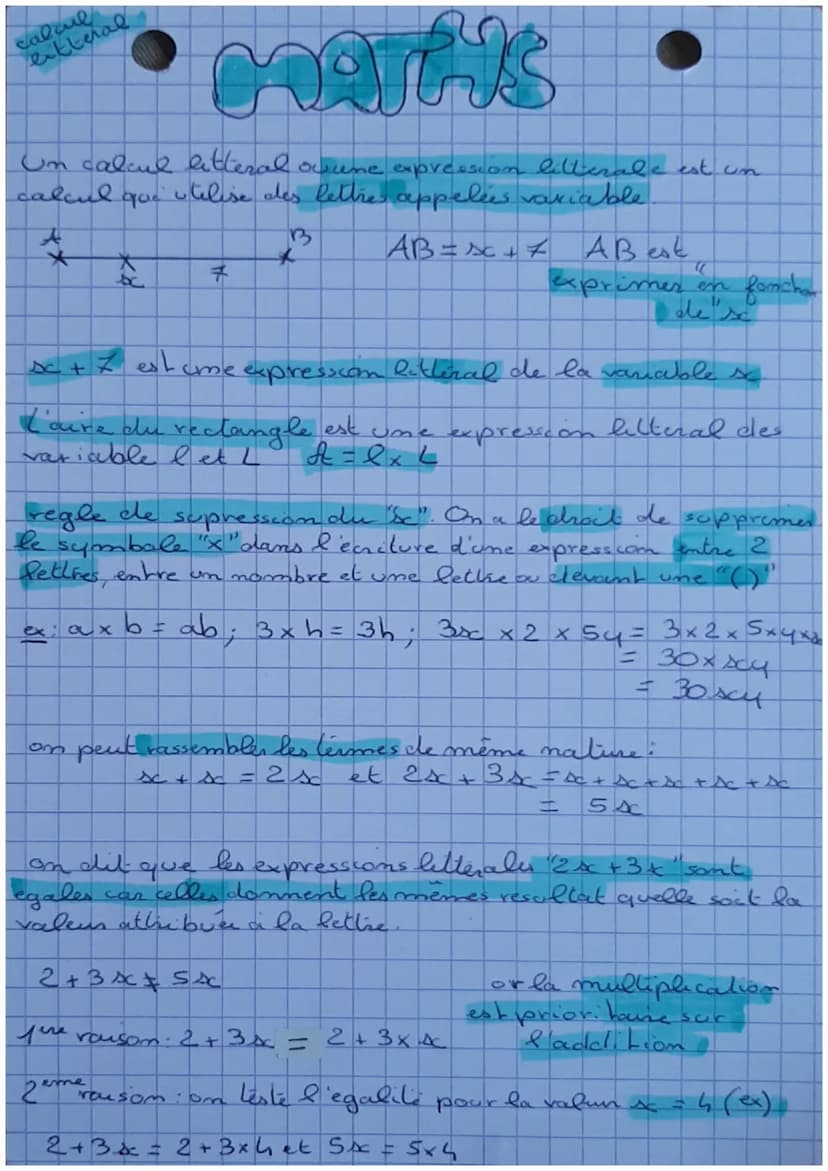 calcul
littéral
MATHS
Un calcul littéral ou une expression littérale est un
calcul qui utilise des lettres appelées variable.
A B AB = x + 7 AB est
x 7 "exprimer en fonction
de" x
x + 7 est une expression littéral de la variable x
L'aire du rectangle est une expression littéral des
variable l et L A = l × L
règle de supression du "x". On a le droit de supprimer
le symbole "x" dans l'écriture d'une expression entre 2
lettres, entre un nombre et une lettre ou devant une "()"
ex: a × b = ab ; 3 × h = 3h ; 3x × 2 × 5y = 3 × 2 × 5 × y × x
= 30 × xy
= 30xy
on peut rassembler les termes de même nature :
x + x = 2x et 2x + 3x = x + x + x + x + x
= 5x
on dit que les expressions littérales "2x + 3x" sont
égales car celles donnent les mêmes resultat quelle soit la
valeur attribuée à la lettre.
2 + 3x ≠ 5x or la multiplication
est prioritaire sur
1ère raison : 2 + 3x = 2 + 3 × x l'addition
2ème raison : on teste l'égalité pour la valeur x = 4 (ex)
2 + 3x = 2 + 3×4 et 5x = 5×4